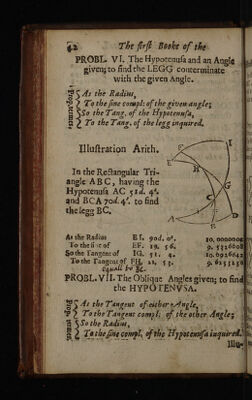 42 The first Booke of the
PROBL. VI. The Hypotenusa and an Angle
given; to find the LEGG conterminate
with the given Angle.
As the Radius,
To the sine compl: of the given angle;
So the Tang. of the Hypotenusa,
To the Tang. of the legg inquired.
Illustration Arith.
In the Rectangular Tri-
angle ABC, having the
Hypotenusa AC 51d. 4'.
and BCA 70d. 4'. to find
the legg BC.
As the Radius EI. 90d. 0'. 10.
To the sine of EF. 19. 56. 9.
So the Tangent of IG. 51. 4. 10.
To the Tangent of FH. 22. 53. 9.
equall to BC.
PROBL. VII. The Oblique Angles given; to find
the HYPOTENUSA.
As the Tangent of either Angle,
To the Tangent compl: of the other Angle;
So the Radius,
To the sine compl. of the Hypotenusa inquired.
Illu-